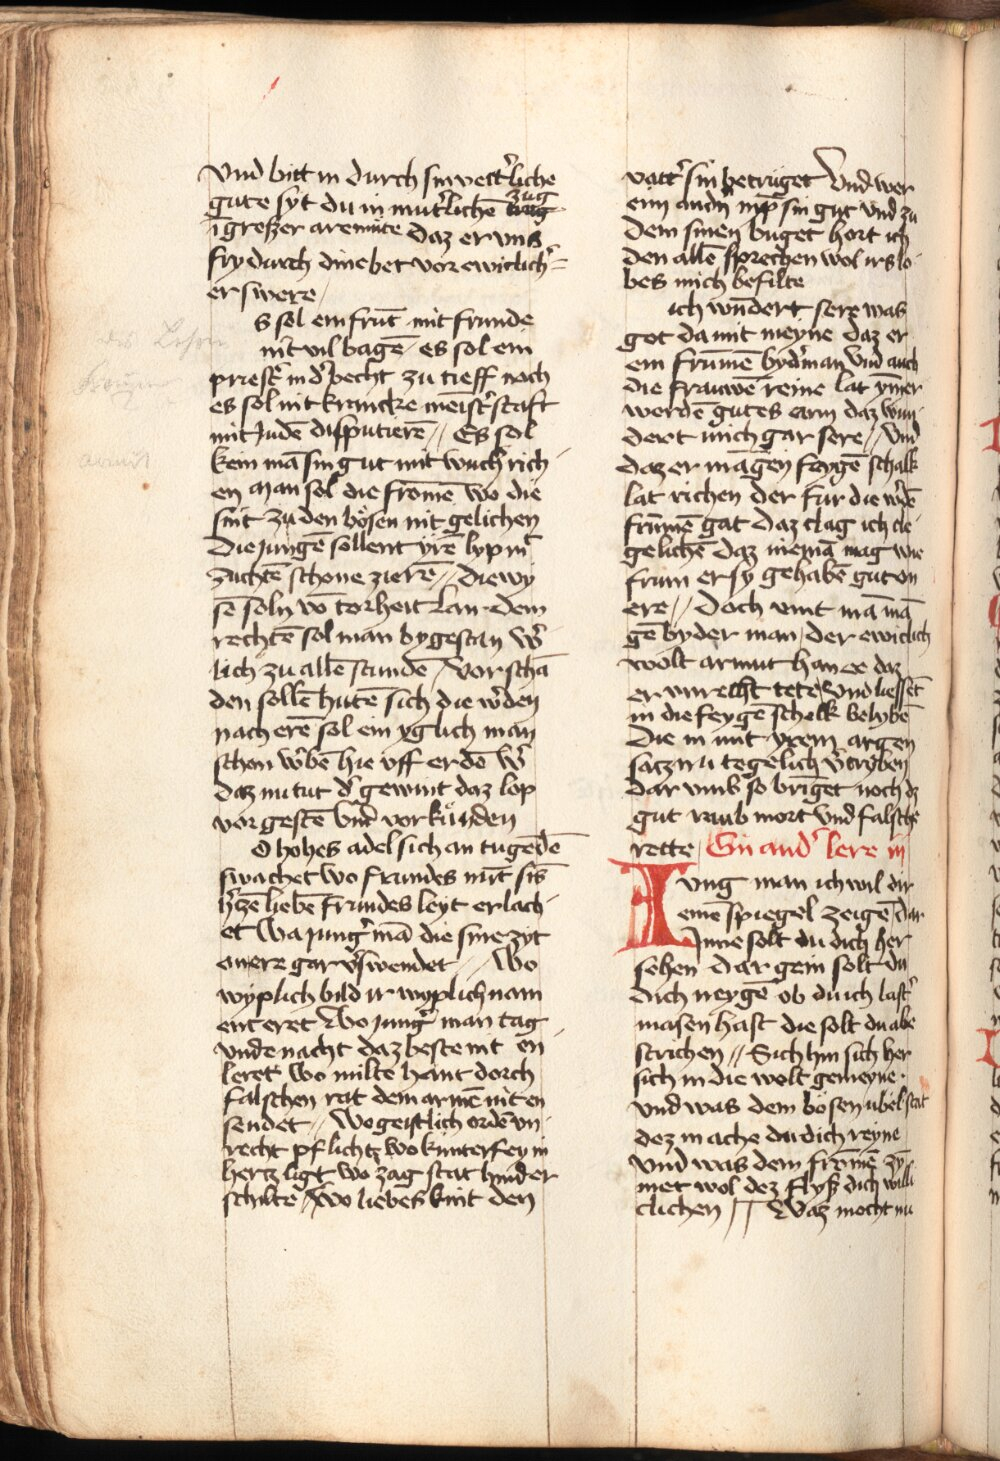 Vnd bitt in durch sin vett'liche
gute syt du in mut'lichē zug
ī groszer aremūte daz er vns
fry durch dine bet vor ewiclich'=
er swere /
s sol ein frūt mit frunde
nit vil bagē es sol ein
priest' in d' becht zu tieff noch
es sol nit krancke meist'schaft
mit Juden disputierē // Es sol
kein mā sin gut mit wuch' rich
en Man sol die fromē wo die
sint zu den bösen nit gelichen
Die jungē sollent yrē lyp mt
zuchtē schone zierē // die wy
se soln vō torheit lan dem
rechtē sol man bygestan w'
lich zu allē stundē / Vor schā
den sollē hutē sich die w'den
nach erē sol ein yglich man
schon w'bē hie vff erdē w'
daz nu tut d' gewint daz lop
vor gestē vnd vor kunden
O hohes adel sich an tugēdē
swachet wo frundes mūt sīs
h'zē liebē frundes leyt erlach
et Wa jung' mā die sine zyt
on ere gar v'swendet // Wo
wyplich bild ir wyplich nam
enteret Wo jung' man tag
vnde nacht daz beste mt en
leret Wo milte hant dorch
falschen rat dem armē nit en
sendet // Wo geistlich ordē vn
recht pflicht Wo kunterfey in
hertz ligt wo zag stat hinder
schilte / Wo liebes kint den
vatt' sin betruget Vnd wer
eim andn mp sin gut vnd zu
dem sinen buget hort ich
den allē sprechen wol irs lo
bes mich befilte
ich wūdert sere was
got da mit meyne daz er
ein frumē byd'man vnd auch
die frauwē reine lat ymer
werdē gutes arm daz wun
dert mich gar sere // Vnd
daz er māgen feygē schalk
lat richen der fur die w'dē
frumē gat daz clag ich cle
gelichē daz niemā mag wie
frum er sy gehabē gut on
ere // Doch vint mā mā
gē byder man der ewiclich
wolt armut han ee daz
er vnrecht tete Vnd liesset
in die feygē schelk belybē
Die in mit yrem argen
satz nu tegelich v'tryben
dar vmb so bringet noch dz
gut raub mort vnd falsche
rette / Ein and' lere in
Iung man ich wil dir
einē spiegel zeigē / Dar
Inne solt du dich her
sehen dar gein solt du
dich neygē ob du ich last'
masen hast die solt du abe
strichen // Sich hin sich her
sich in die wolt gemeyne
vnd was dem bösen ubel stat
dez mache du dich reyne
Vnd was dem fromē zy
met wol dez flysz dich willi
clichen // Waz mocht nu